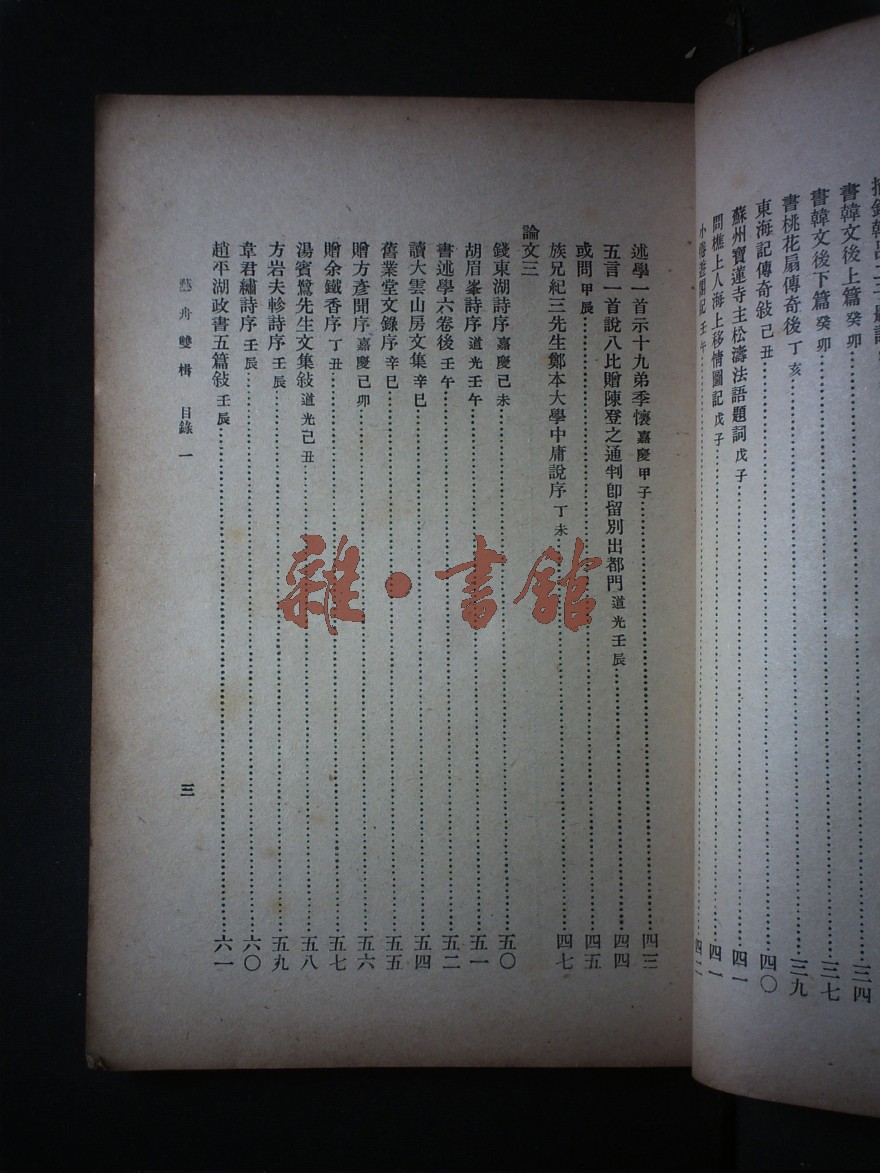 書韓文後上篇 癸卯……三四
書韓文後下篇 癸卯……三七
書桃花扇傳奇後 丁亥……三九
東海記傳奇敍 己丑……四〇
蘇州寶蓮寺主松濤法語題詞 戊子……四一
問樵上人海上移情圖記 戊子……四一
述學一首示十九弟季懷 嘉慶甲子……四三
五言一首說八比贈陳登之通判卽留別出都門 道光壬辰……四四
或問 甲辰……四五
族兄紀三先生鄭本大學中庸說序 丁未……四七
論文三
錢東湖詩序 嘉慶己未……五〇
胡眉峯詩序 道光壬午……五一
書述學六卷後 壬午……五二
讀大雲山房文集 辛巳……五四
舊業堂文錄序 辛巳……五五
贈方彥聞序 嘉慶己卯……五六
贈余鐵香序 丁丑……五七
湯賓鷺先生文集敍 道光己丑……五八
方岩夫軫詩序 壬辰……五九
韋君繡詩序 壬辰……六〇
趙平湖政書五篇敍 壬辰……六一
藝舟雙楫 目錄一
三
雜·書館